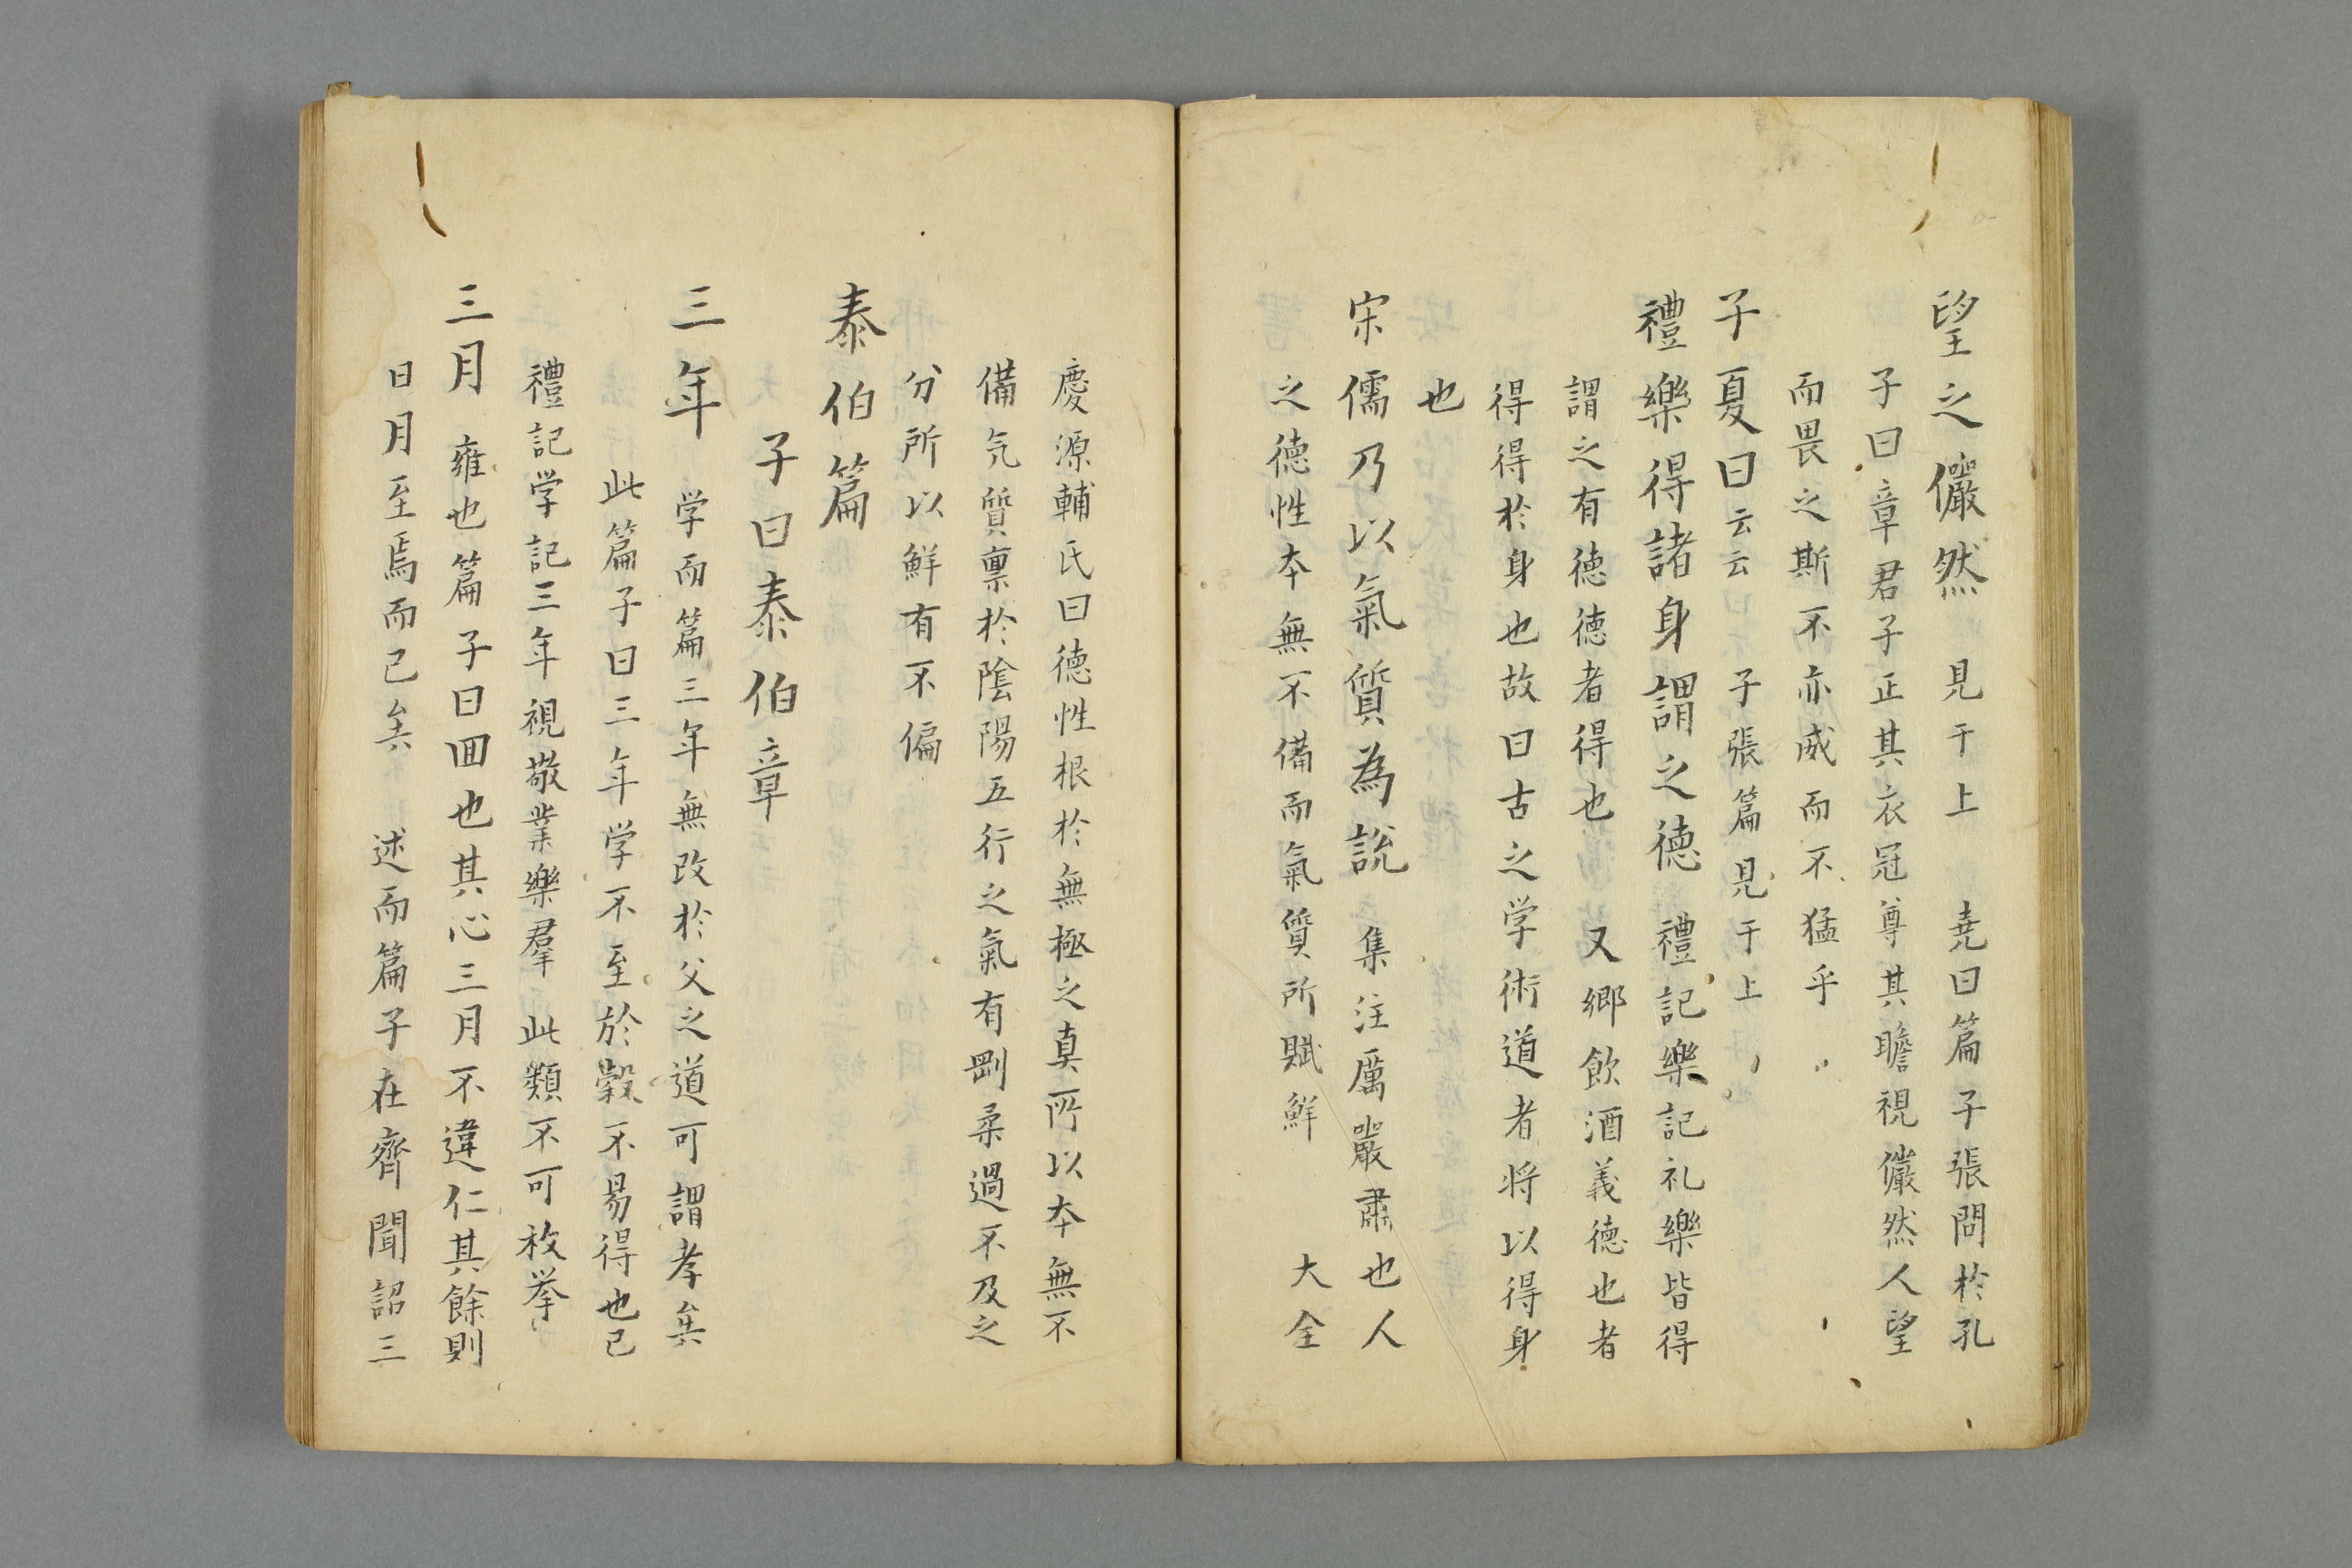 望之儼然 見于上 堯曰篇子張問於孔
子曰章君子正其衣冠尊其瞻視儼然人望
而畏之斯不亦威而不猛乎
子夏曰云云 子張篇見于上
禮樂得諸身謂之德 禮記樂記礼樂皆得
謂之有德德者得也 又鄉飲酒義德也者
得得於身也故曰古之学術道者将以得身
也
宋儒乃以氣質為說 集注厲嚴肅也人
之德性本無不備而氣質所賦鮮 大全
慶源輔氏曰德性根於無極之真所以本無不
備氕質禀於陰陽五行之氣有剛柔過不及之
分所以鮮有不偏
泰伯篇
子曰泰伯章
三年 学而篇三年無改於父之道可謂孝矣
此篇子曰三年学不至於穀不易得也已
禮記学記三年視敬業樂羣 此類不可枚挙
三月 雍也篇子曰囬也其心三月不違仁其餘則
日月至焉而已矣 述而篇子在齊聞詔三